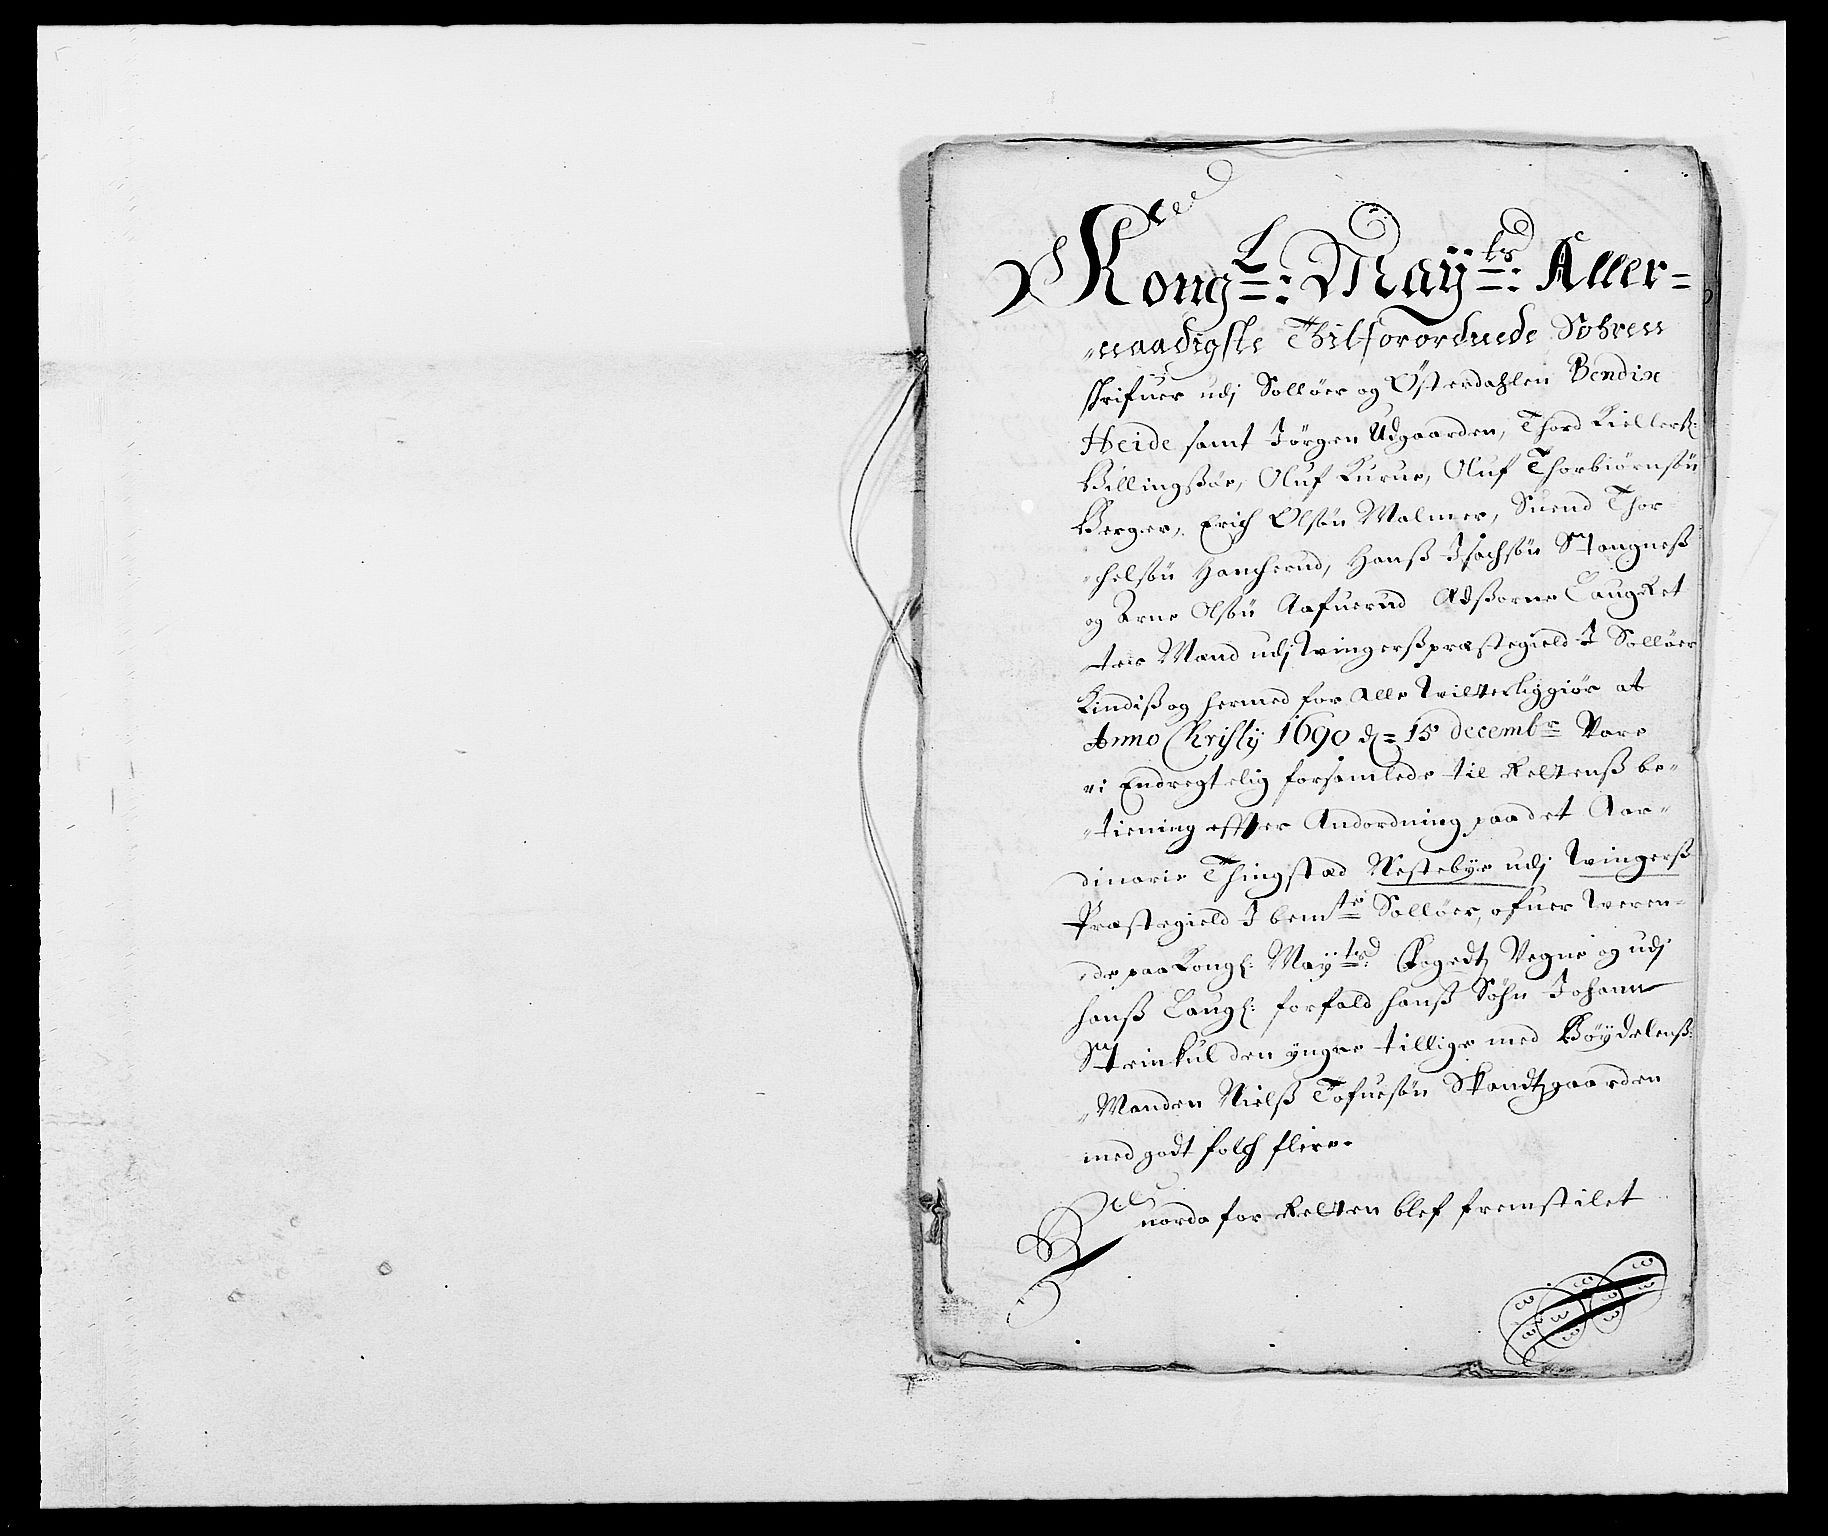 Kongl: Maÿts: Aller=
naadigste Thilforordnede Sohren
skrifuer udj Solløer og Østerdahlen Bendix
Heide samt Jørgen Udgaarden, Thord Kieller
Billingsøe, Oluf Kurue, Oluf Thorbiørnsøn
Berger, Erich Olsøn Malmer, Suend Thor
chelsøn Hancherud, Hanß Isachsøn Stangneß
og Arne Olsøn Aafuerud Edsorne Laug Ret
tes Mænd udj Wingerß præstegield I Solløer
Kindiß og hermed for alle witterliggiør at
Anno Christij 1690 d= 15 decembr Vare
vi Endregtelig forsamlede til Rettenß be„
„tiening effter Andordning paa det Aar„
dinarie Thingstæd Nestebye udj Wingerß
Præstegield I bemte Solløer, ofuer weren„
„de paa Kongl: Maÿts: Fogedtz Vegne og udj
hanß Laugl: forfald hanß Søhn Johann
Steinkul den ÿngre tillige med Bøÿdelenß:
„Manden Nielß Tofuesøn Skandtzgaarden
med godt folch flere.
norda for Retten blef fremstilet